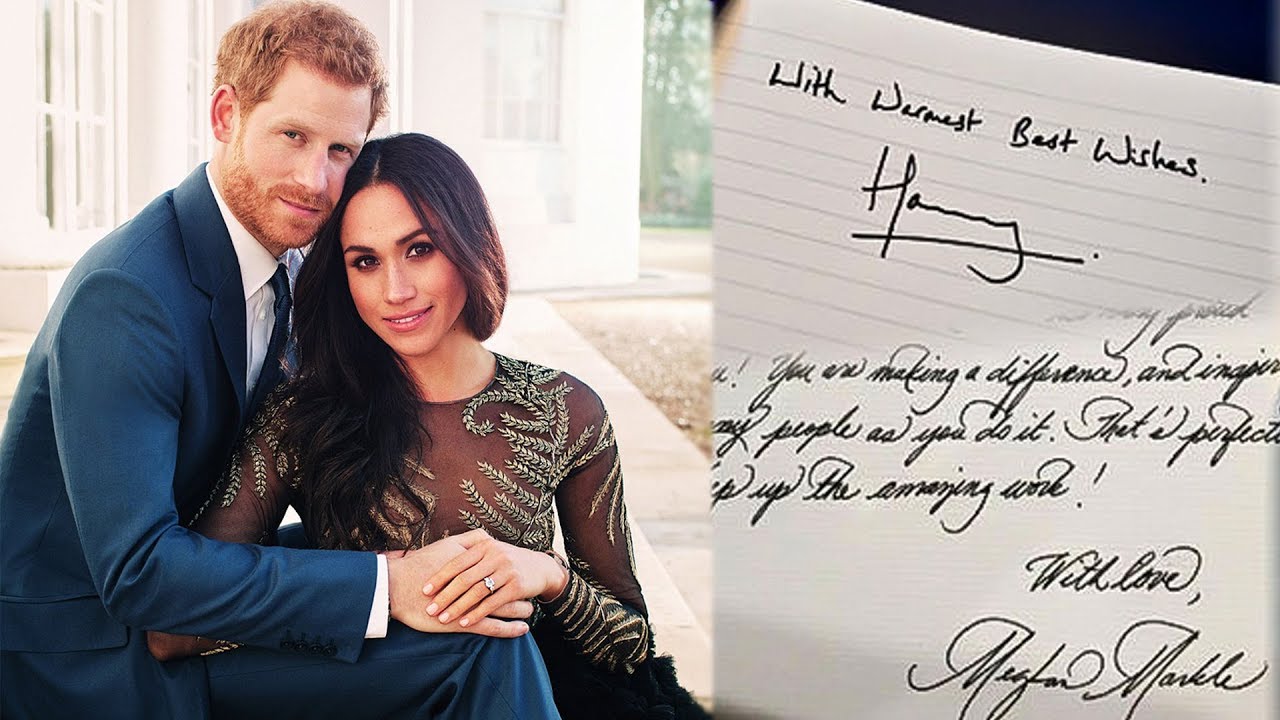 With Warmest Best Wishes.
Harry.
proud
u! You are making a difference, and inspir
ny people as you do it. That's perfect
ep up the amazing work!
With love,
Meghan Markle